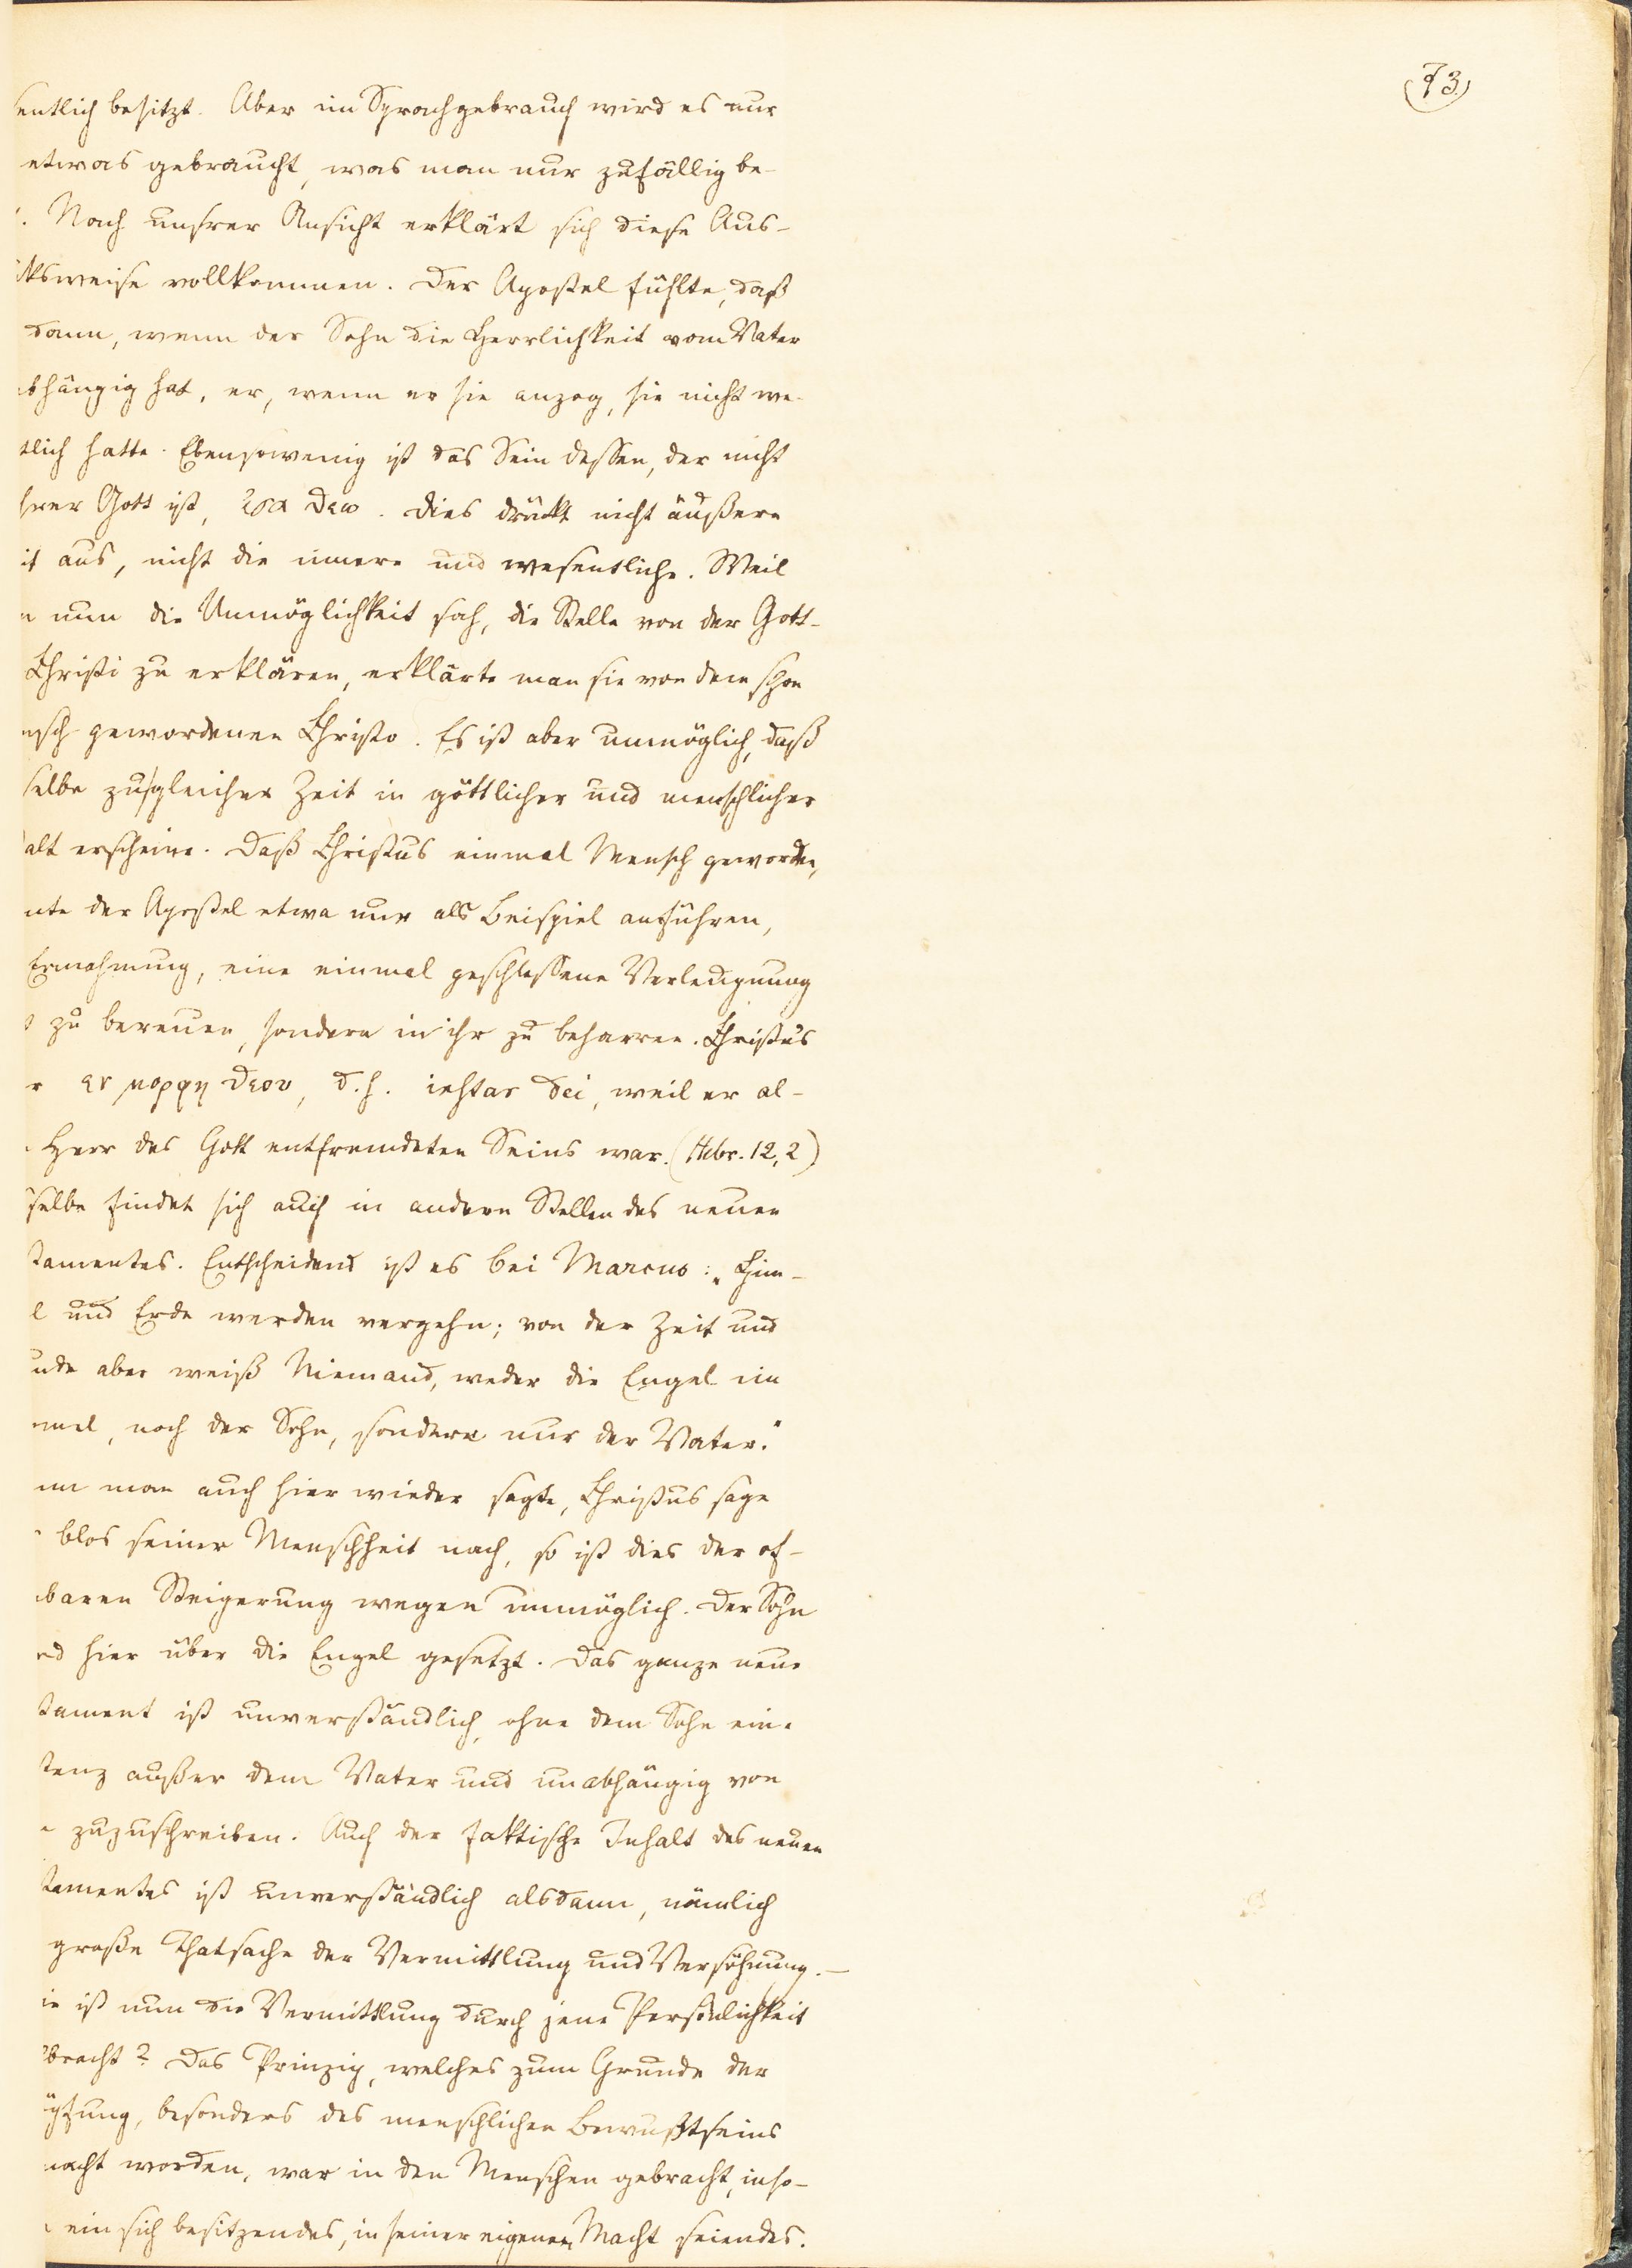 73
entlich besitzt. Aber im Sprachgebrauch wird es nur
etwas gebraucht, was man nur zufällig be-
. Nach unsrer Ansicht erklärt sich diese Aus-
ksweise vollkommen. Der Apostel fühlte, daß
dann, wenn der Sohn die Herrlichkeit vom Vater
bhängig hat, er, wenn er sie anzog, sie nicht we-
tlich hatte. Ebensowenig ist das Sein dessen, der nicht
hrer Gott ist, ισα θεω. Dies drückt nicht äußere
it aus, nicht die innere und wesentliche. Weil
n nun die Unmöglichkeit sah, die Stelle von der Gott-
Christi zu erklären, erklärte man sie von dem schon
nsch gewordenen Christo. Es ist aber unmöglich, daß
selbe zu gleicher Zeit in göttlicher und menschlicher
alt erscheine. Daß Christus einmal Mensch geworden,
nte der Apostel etwa nur als Beispiel anführen,
Ermahnung, eine einmal geschlossene Verleugnung
zu bereuen, sondern in ihr zu beharren. Christus
r εν μορφη θεου, d.h. instar dei, weil er al-
Herr des Gott entfremdeten Seins war. (Hebr. 12,2)
selbe findet sich auch in andern Stellen des neuen
tamentes. Entscheidend ist es bei Marcus: „Him-
l und Erde werden vergehn; von der Zeit und
unde aber weiß Niemand, weder die Engel im
mel, noch der Sohn, sondern nur der Vater.“
nn man auch hier wieder sagte, Christus sage
blos seiner Menschheit nach, so ist dies der of-
baren Steigerung wegen unmöglich. Der Sohn
rd hier über die Engel gesetzt. Das ganze neue
tament ist unverständlich, ohne dem Sohn eine
tenz außer dem Vater und unabhängig von
zuzuschreiben. Auch der faktische Inhalt des neuen
tamentes ist unverständlich alsdann, nämlich
große Thatsache der Vermittlung und Versöhnung. —
ie ist nun die Vermittlung durch jene Persönlichkeit
bracht? Das Prinzip, welches zum Grunde der
öpfung, besonders des menschlichen Bewußtseins
macht worden, war in den Menschen gebracht, inso-
ein sich besitzendes, in seiner eigenen Macht seiendes.